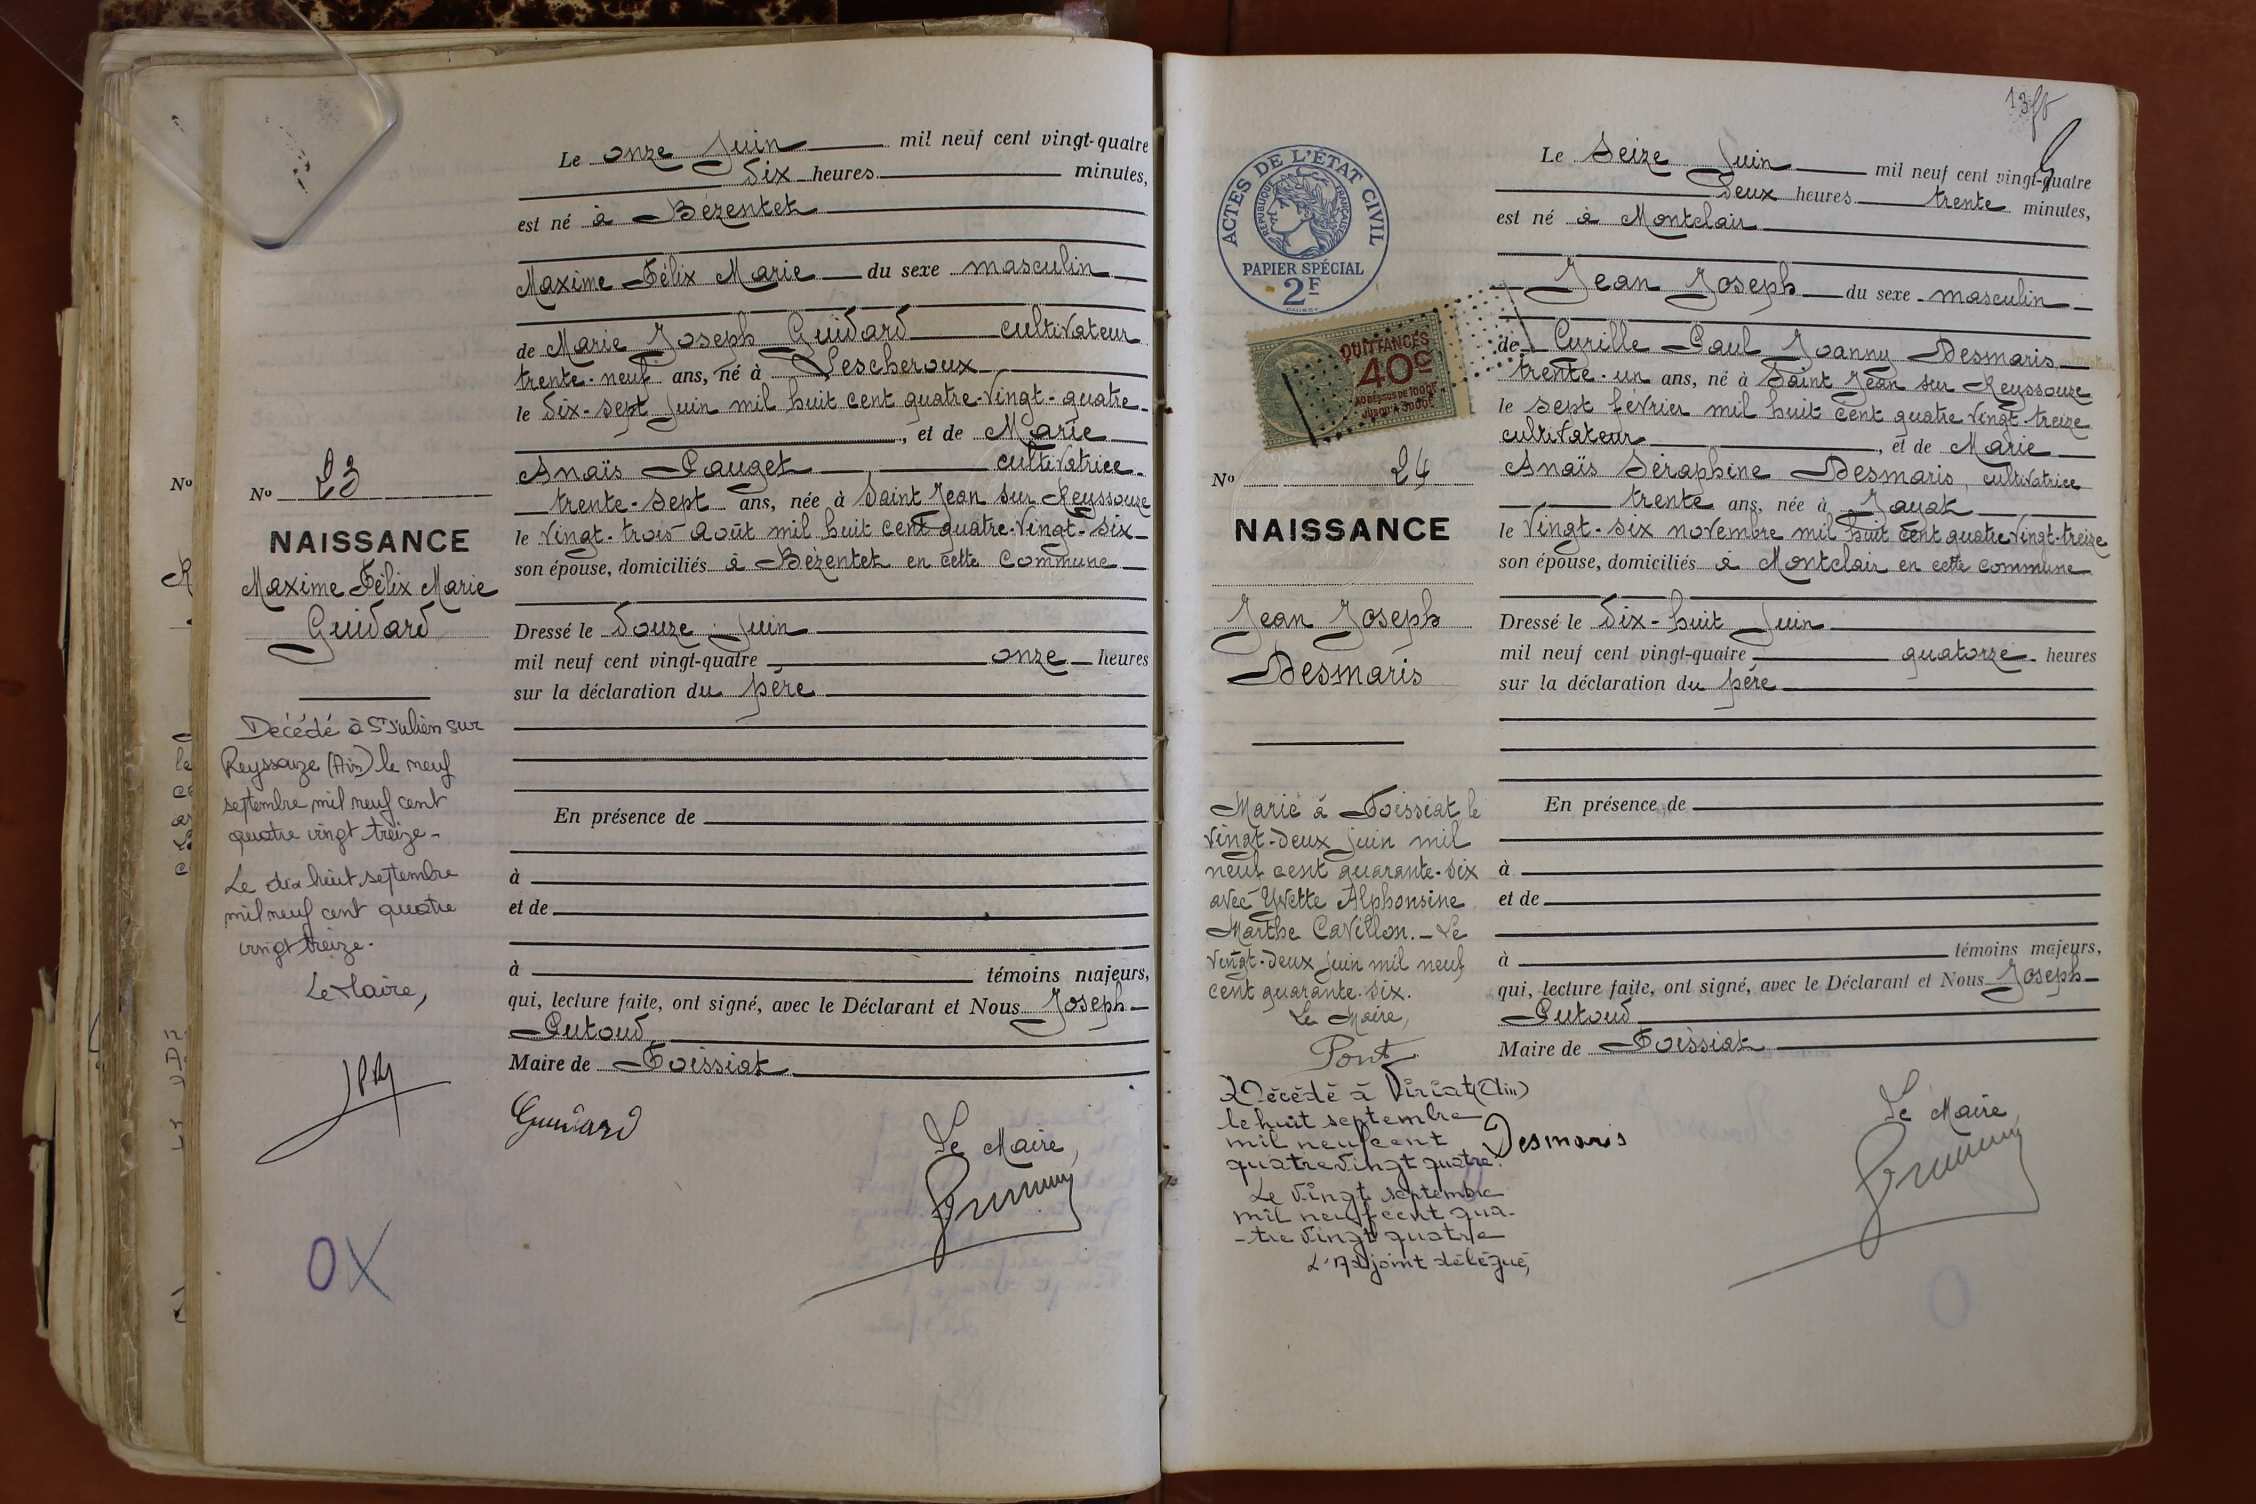 Le onze Juin mil neuf cent vingt-quatre
six heures minutes,
est né à Bézentet
Maxime Félix Marie du sexe masculin
de Marie Joseph Guidard cultivateur
trente-neuf ans, né à Lescheroux
le dix-sept Juin mil huit cent quatre-vingt-quatre
, et de Marie
Anaïs Pauget cultivatrice
trente-sept ans, née à Saint Jean sur Reyssouze
le vingt-trois août mil huit cent quatre-vingt-six
son épouse, domiciliés à Bézentet en cette commune
Dressé le douze Juin
mil neuf cent vingt-quatre onze heures
sur la déclaration du père
En présence de
à
et de
à témoins majeurs,
qui, lecture faite, ont signé, avec le Déclarant et Nous Joseph
Putoud
Maire de Foissiat
Guidard
Le Maire,
No 23
NAISSANCE
Maxime Félix Marie
Guidard
Décédé à St Julien sur
Reyssouze (Ain) le neuf
septembre mil neuf cent
quatre vingt treize-
Le dix huit septembre
mil neuf cent quatre
vingt treize.
Le Maire,
OX
No
13
ACTES DE L'ÉTAT CIVIL
RÉPUBLIQUE FRANÇAISE
PAPIER SPÉCIAL
2F
QUITTANCES
40c
AU DESSUS DE 1000F
JUSQU'A 3000F
No 24
NAISSANCE
Jean Joseph
Desmaris
Marié à Foissiat le
vingt-deux juin mil
neuf cent quarante-six
avec Yvette Alphonsine
Marthe Cavillon.- Le
vingt-deux juin mil neuf
cent quarante-six.
Le Maire,
Pont
Décédé à Viriat (Ain)
le huit septembre
mil neuf cent
quatre vingt quatre.
Le vingt septembre
mil neuf cent qua-
-tre vingt quatre
L'Adjoint délégué,
Le Seize Juin mil neuf cent vingt-quatre
deux heures trente minutes,
est né à Montclair
Jean Joseph du sexe masculin
de Cyrille Paul Joanny Desmaris
trente-un ans, né à Saint Jean sur Reyssouze
le sept février mil huit cent quatre vingt treize
cultivateur, et de Marie
Anaïs Séraphine Desmaris, cultivatrice
trente ans, née à Jayat
le vingt-six novembre mil huit cent quatre vingt-treize
son épouse, domiciliés à Montclair en cette commune
Dressé le dix-huit Juin
mil neuf cent vingt-quatre quatorze heures
sur la déclaration du père
En présence de
à
et de
à témoins majeurs,
qui, lecture faite, ont signé, avec le Déclarant et Nous Joseph
Putoud
Maire de Foissiat
Desmaris
Le Maire